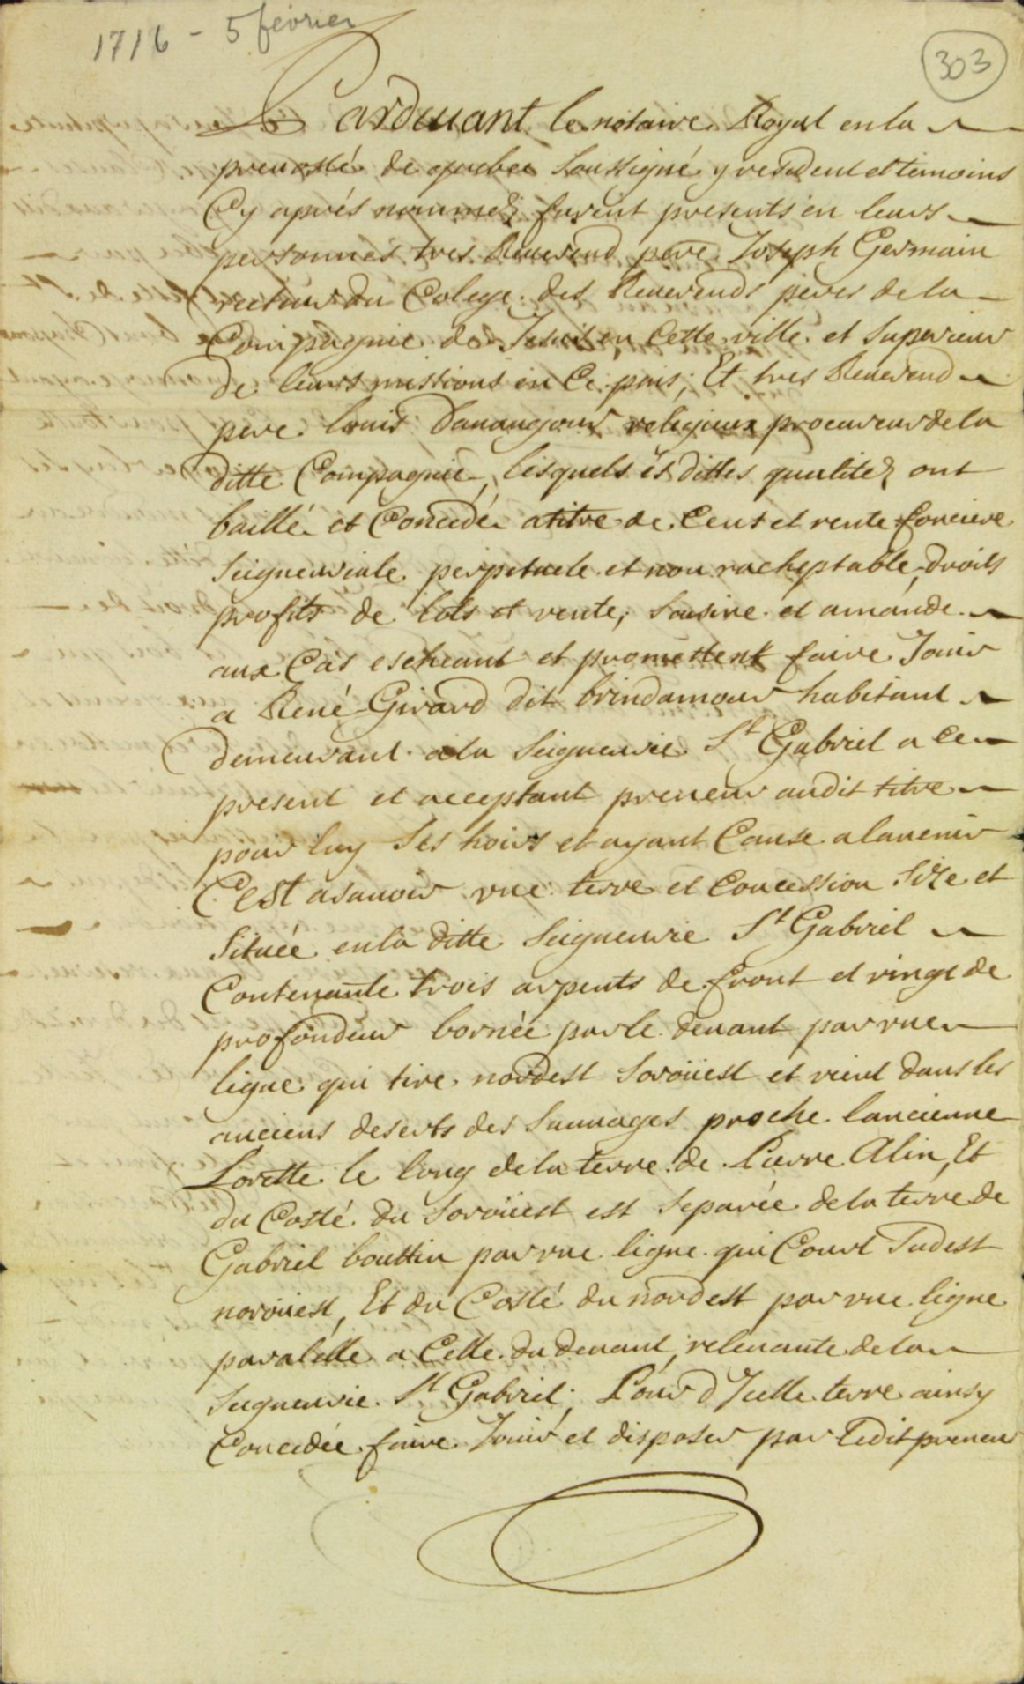 1716 - 5 février
303
Pardeuant le notaire Royal en la
preuosté de quebec soussigné y resident et temoins
Cy aprés nommez furent presents en leurs
personnes tres Reuerend pere Joseph Germain
recteur du Colege des Reuerends peres de la
Compagnie de Jesus en Cette ville et superieur
de leurs missions en Ce pais, Et tres Reuerend
pere louis Dauaugour religieux procureur de la
ditte Compagnie, lesquels es dittes qualitez ont
baillé et Concedé a titre de Cens et rente fonciere
seigneuriale perpetuele et non racheptable, droits
profits de lots et vente, saisine et amande
aux Cas escheant et promettent faire Jouir
a René Girard dit brindamour habitant
demeurant a la seigneurie St Gabriel a ce
present et acceptant preneur audit titre
pour luy ses hoirs et ayant Cause alauenir
C'est asauoir vne terre et Concession size et
située en la ditte seigneurie St Gabriel
Contenante trois arpents de front et vingt de
profondeur bornée par le deuant par vne
ligne qui tire nordest sorouest et vient dans les
anciens deserts des sauuages proche lancienne
Lorette le long de la terre de Pierre Alin, Et
du Costé du sorouest est separée de la terre de
Gabriel bouttin par vne ligne qui Court sudest
norouest, Et du Costé du nordest par vne ligne
paralelle a Celle du deuant, releuante de la
seigneurie St Gabriel, Pour d'Jcelle terre ainsy
Concedée faire Jouir et disposer par Ledit preneur